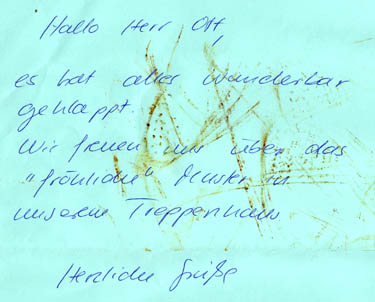 Hallo Herr Ott,
es hat alles wunderbar
geklappt.
Wir freuen uns über das
"fröhliche" Muster in
unserem Treppenhaus
Herzliche Grüße